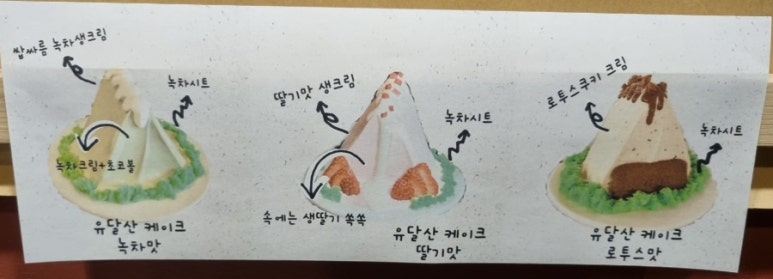 쌉싸름 녹차생크림
녹차시트
녹차크림+초코볼
유달산 케이크
녹차맛
딸기맛 생크림
녹차시트
속에는 생딸기 쏙쏙
유달산 케이크
딸기맛
로투스쿠키 크림
녹차시트
유달산 케이크
로투스맛